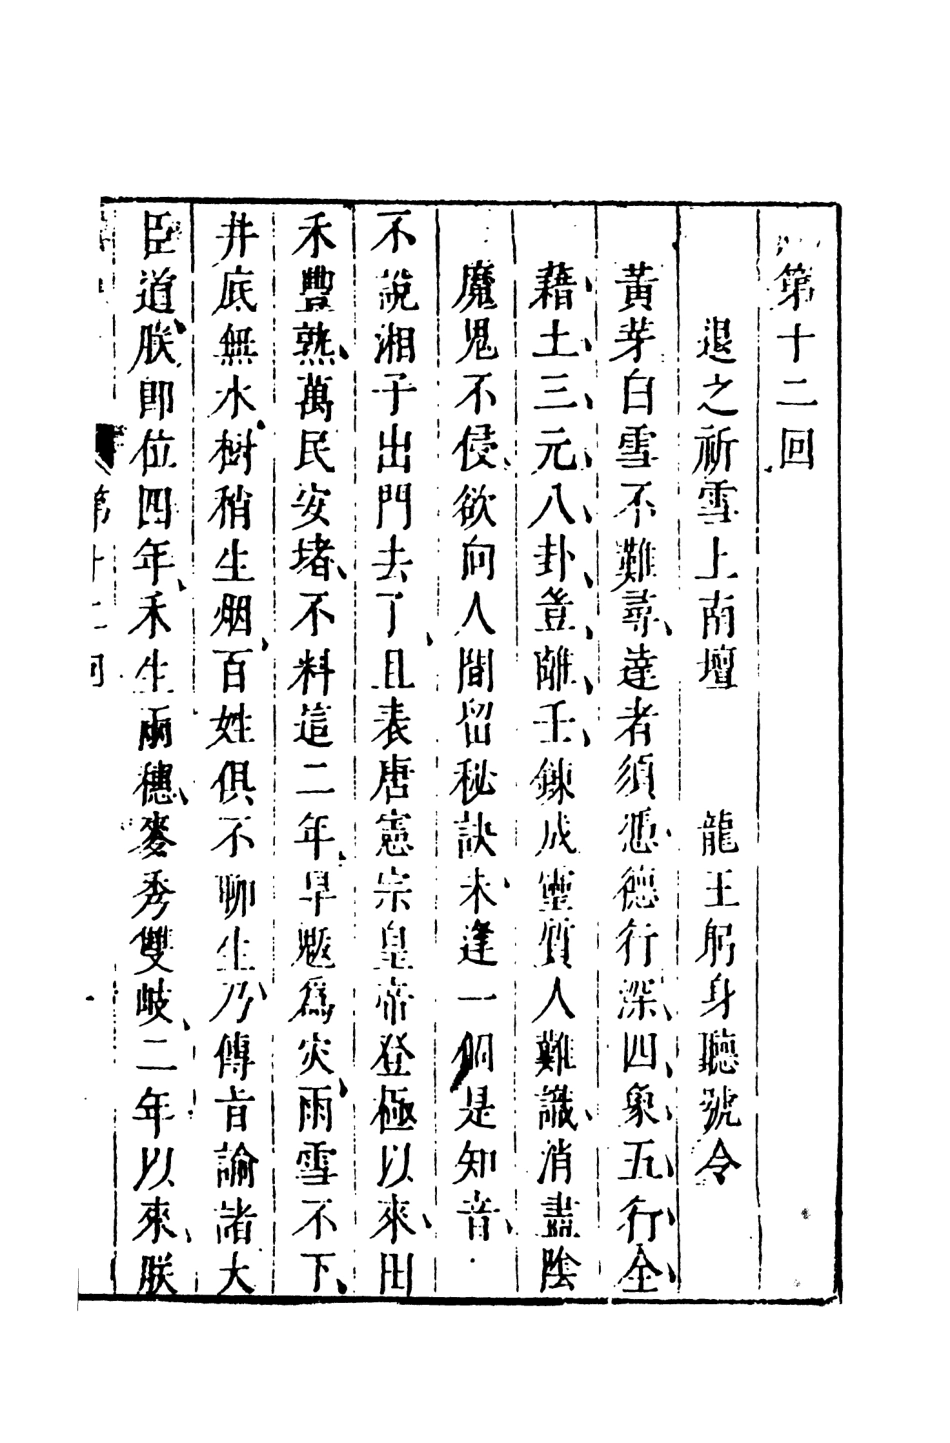 第十二回
退之祈雪上南壇　龍王躬身聽號令
黃芽白雪不難尋、達者須憑德行深、四象、五行全
藉土、三元、八卦、豈離壬、鍊成靈質人難識、消盡陰
魔鬼不侵、欲向人間留秘訣、未逢一個是知音、
不說湘子出門去了、且表唐憲宗皇帝登極以來、田
禾豐熟、萬民安堵、不料這二年、旱魃爲灾、雨雪不下、
井底無水、樹稍生烟、百姓俱不聊生、乃傳旨諭諸大
臣道、朕即位四年、禾生兩穗、麥秀雙岐、二年以來、朕
第十二回